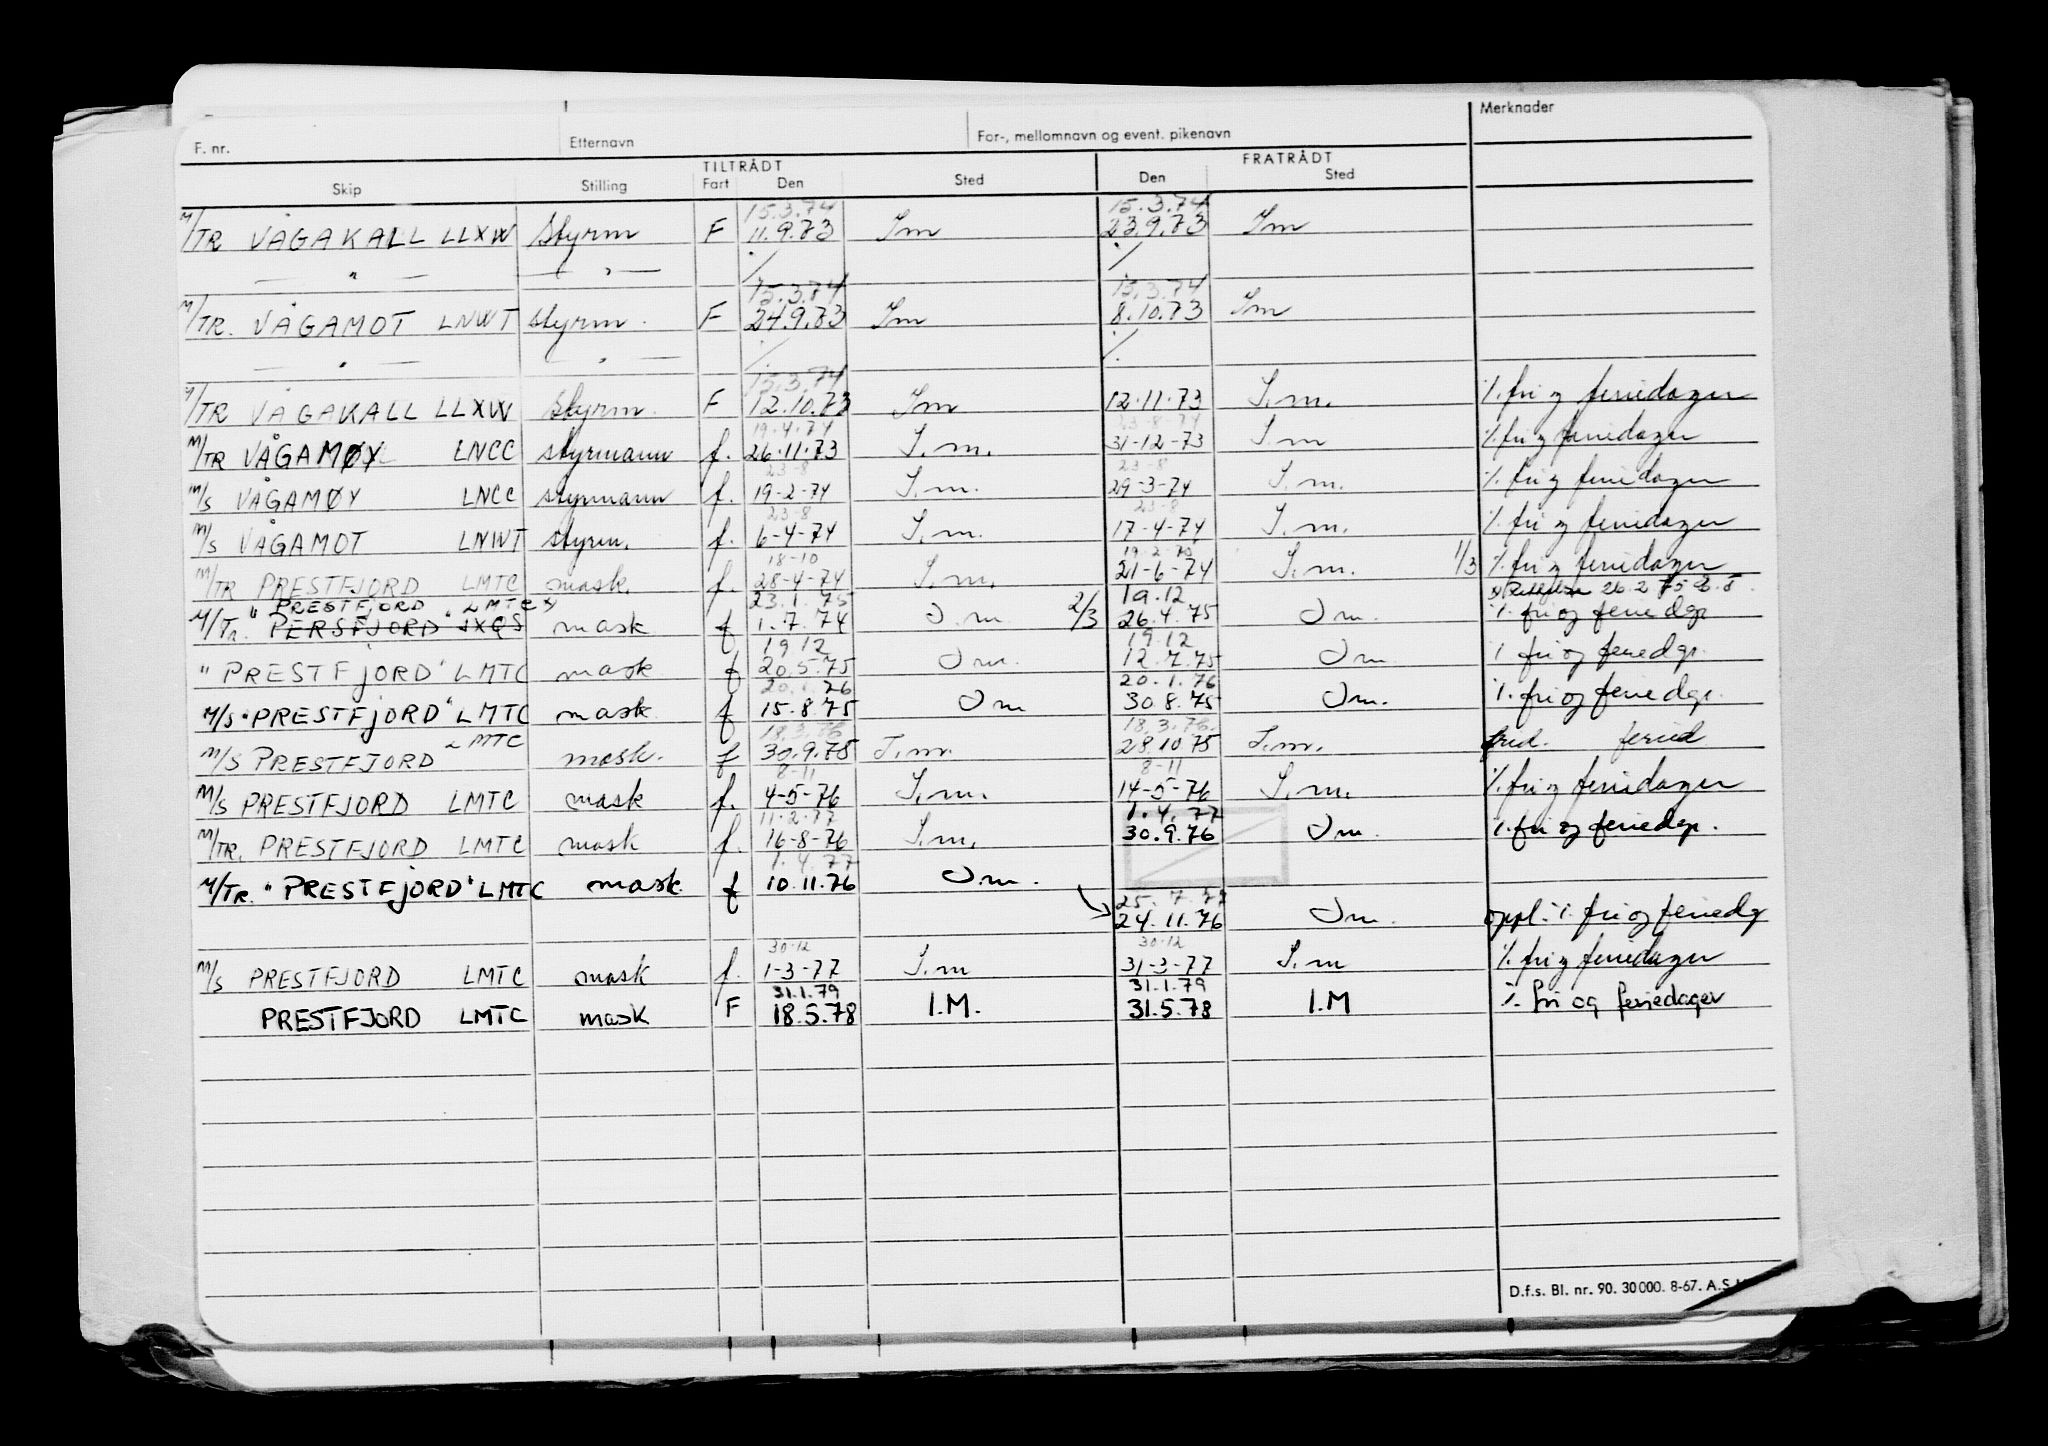 F. nr. Etternavn For-, mellomnavn og event. pikenavn Merknader
TILTRÅDT FRATRÅDT
Skip Stilling Fart Den Sted Den Sted
15.3.74 15.3.74
M/TR VÅGAKALL LLXW Styrm F 11.9.73 Im 23.9.73 Im
— " — — " — ./. ./.
15.3.74 15.3.74
M/TR. VÅGAMOT LNWT Styrm. F 24.9.73 Im 8.10.73 Im
— " — — " — ./. ./.
15.3.74
M/TR VÅGAKALL LLXW Styrm. F 12.10.73 Im 12.11.73 I.m. ./. fri og feriedager
19.4.74 23-8-74
M/TR VÅGAMØY LNCC styrmann f. 26.11.73 I.m. 31-12-73 I.m ./. fri og feriedager
23-8 23-8
M/S VÅGAMØY LNCC styrmann f. 19-2-74 I.m. 29-3-74 I.m. ./. fri og feriedager
23-8 23-8
M/S VÅGAMOT LNWT styrm. f. 6-4-74 I.m. 17-4-74 I.m. ./. fri og feriedager
18-10 19-2-70
M/TR PRESTFJORD LMTC mask. f. 28-4-74 I.m. 21-6-74 I.m. 1/3 ./. fri og feriedager
" PRESTFJORD " LMTC x) 23.1.75 19.12 26.2.75
M/Tr. "PERSFJORD" JXQS mask f 1.7.74 I.m 2/3 26.4.75 I m. ./. fri og feriedgr
19 12 19.12
"PRESTFJORD" LMTC mask f 20.5.75 I m. 12.7.75 I m. ./. fri og feriedgr.
20.1.76 20.1.76
M/S "PRESTFJORD" LMTC mask f 15.8.75 I m 30.8.75 I m. ./. fri og feriedgr.
18.3.76 18.3.76.
M/S PRESTFJORD LMTC mask. f 30.9.75 I.m. 28.10.75 I.m. frid. feried
8-11 8-11
M/S PRESTFJORD LMTC mask f. 4-5-76 I.m. 14-5-76 I.m. ./. fri og feriedager
11-2-77 1.4.77
M/TR. PRESTFJORD LMTC mask f. 16-8-76 I.m. 30.9.76 I m. ./. fri og feriedgr.
1.4.77
M/Tr. "PRESTFJORD" LMTC mask f 10.11.76 I.m.
25.7.77
24.11.76 I m. oppl. ./. fri og feriedgr
30-12 30-12
M/S PRESTFJORD LMTC mask f. 1-3-77 I.m 31-3-77 I.m ./. fri og feriedager
31.1.79 31.1.79
PRESTFJORD LMTC mask F 18.5.78 I.M. 31.5.78 I.M ./. fri og feriedager
D.f.s. Bl. nr. 90. 30 000. 8-67. A.S